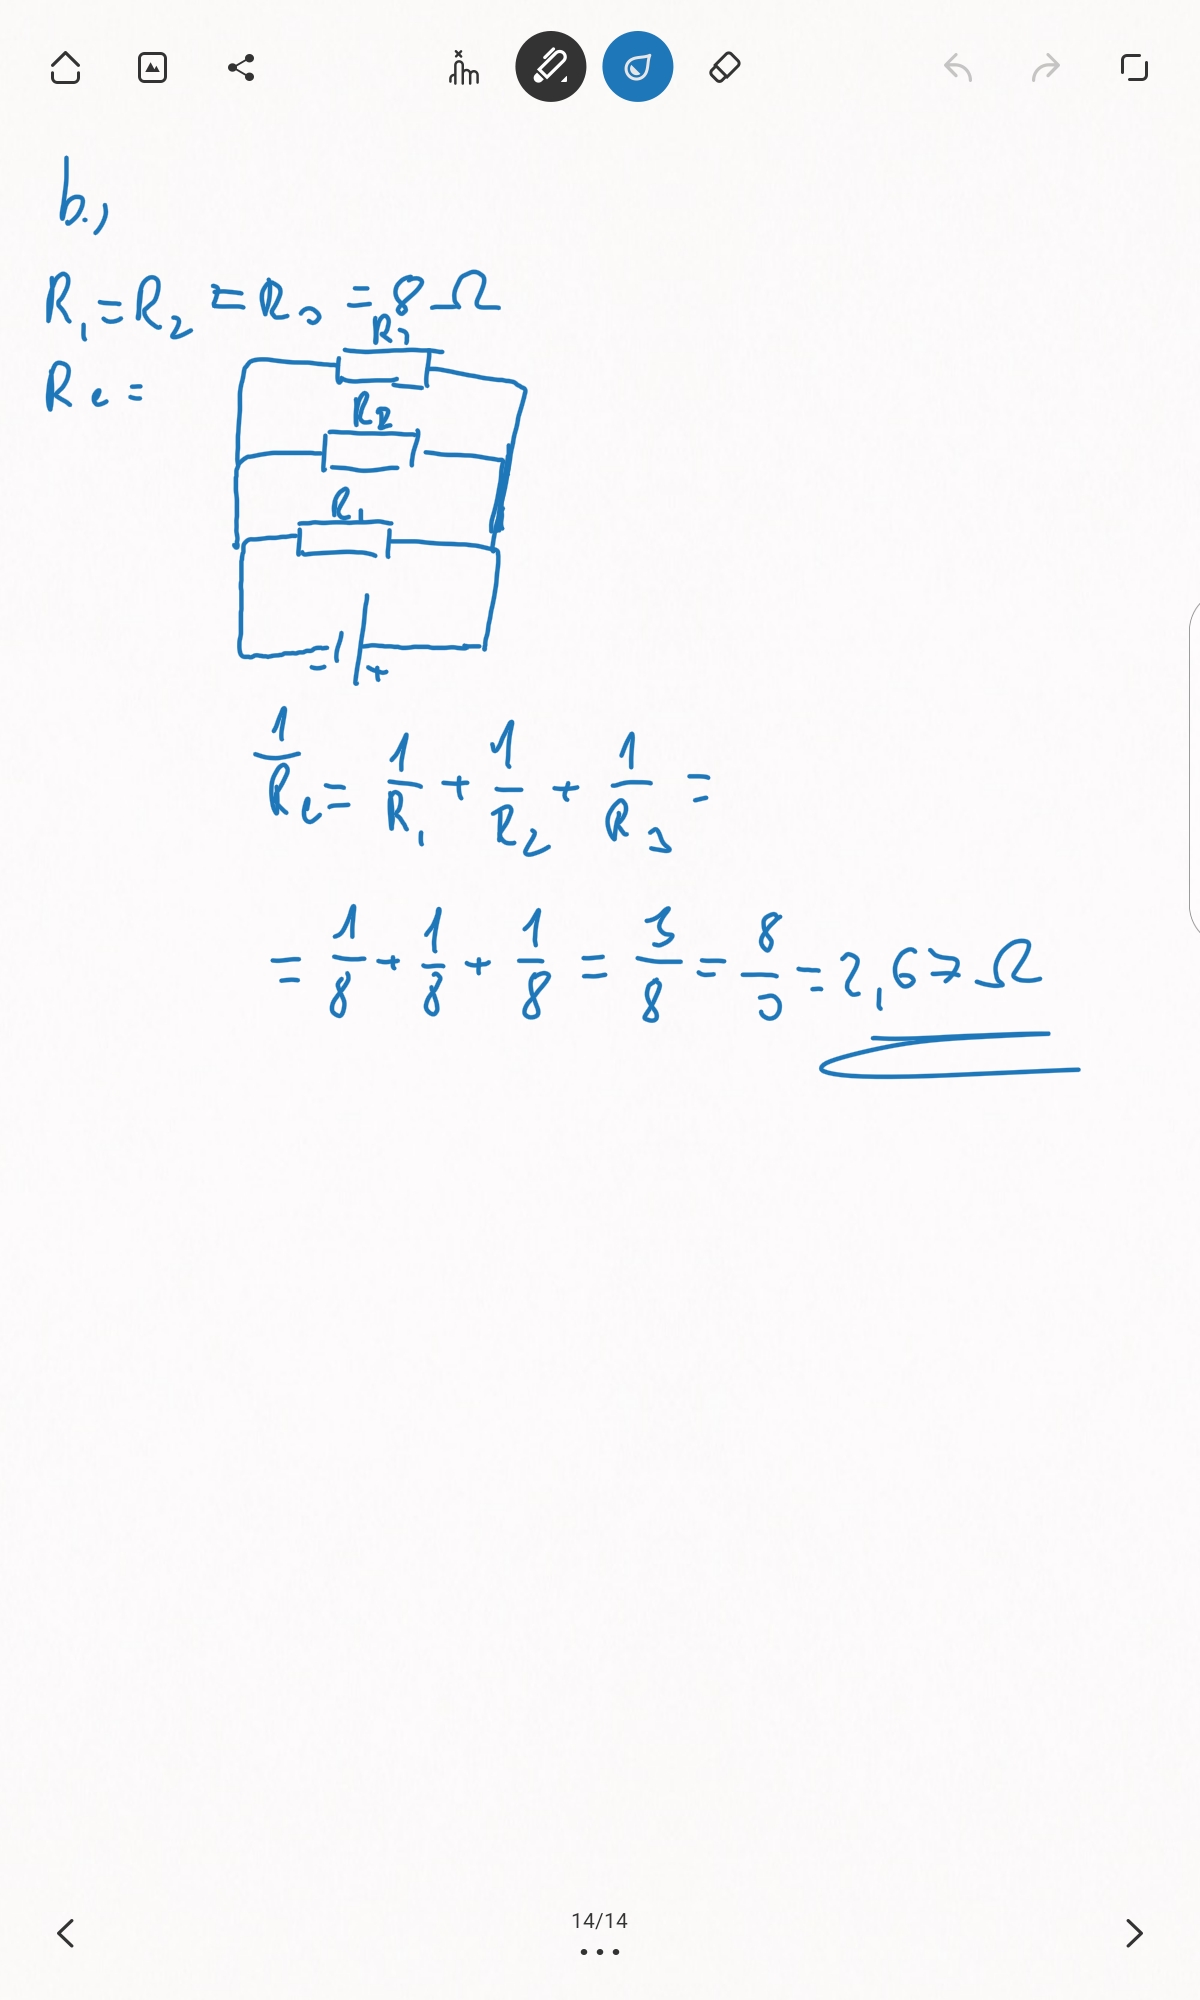 b.,
R₁ = R₂ = R₃ = 8 Ω
Re =
R₃
R₂
R₁
- +
1/Re = 1/R₁ + 1/R₂ + 1/R₃ =
= 1/8 + 1/8 + 1/8 = 3/8 = 8/3 = 2,67 Ω
14/14